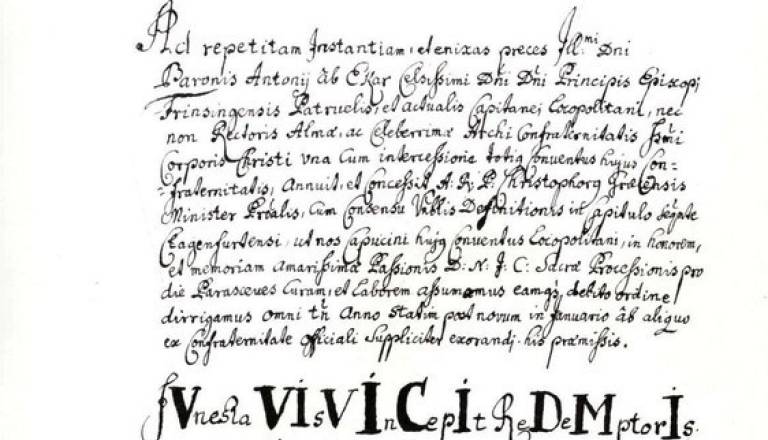 Ad repetitam Instantiam, et enixas preces Ill:mi Dni
Baronis Antonij ab Ekar Celsissimi Dni Dni Principis Episcopi
Frinsingensis Patruelis, et actualis Capitanei Locopolitani, nec
non Rectoris Almæ, ac Celeberrimæ Archi Confraternitatis Ssmi
Corporis Christi una Cum intercessione totig Conventus hujus Con-
-fraternitatis, Annuit, et Concessit A: R: P: Christophorg Græcensis
Minister Prőalis, Cum Consensu Vnblis Definitionis in Capitulo
Clagenfurtensi, ut nos Capucini hujg Conventus Locopolitani, in honorem,
et memoriam amarissimæ Passionis D: N: J: C: Sacræ Processionis pro
die Parasceves Curam, et laborem assumamus eamq3, debito ordine
dirrigamus omni tñ Anno statim post novum in Januario âb aliquo
ex Confraternitate officiali suppliciter exorandj. his præmissis.
fVnesta VisVInCepIt ReDeMptorIs.